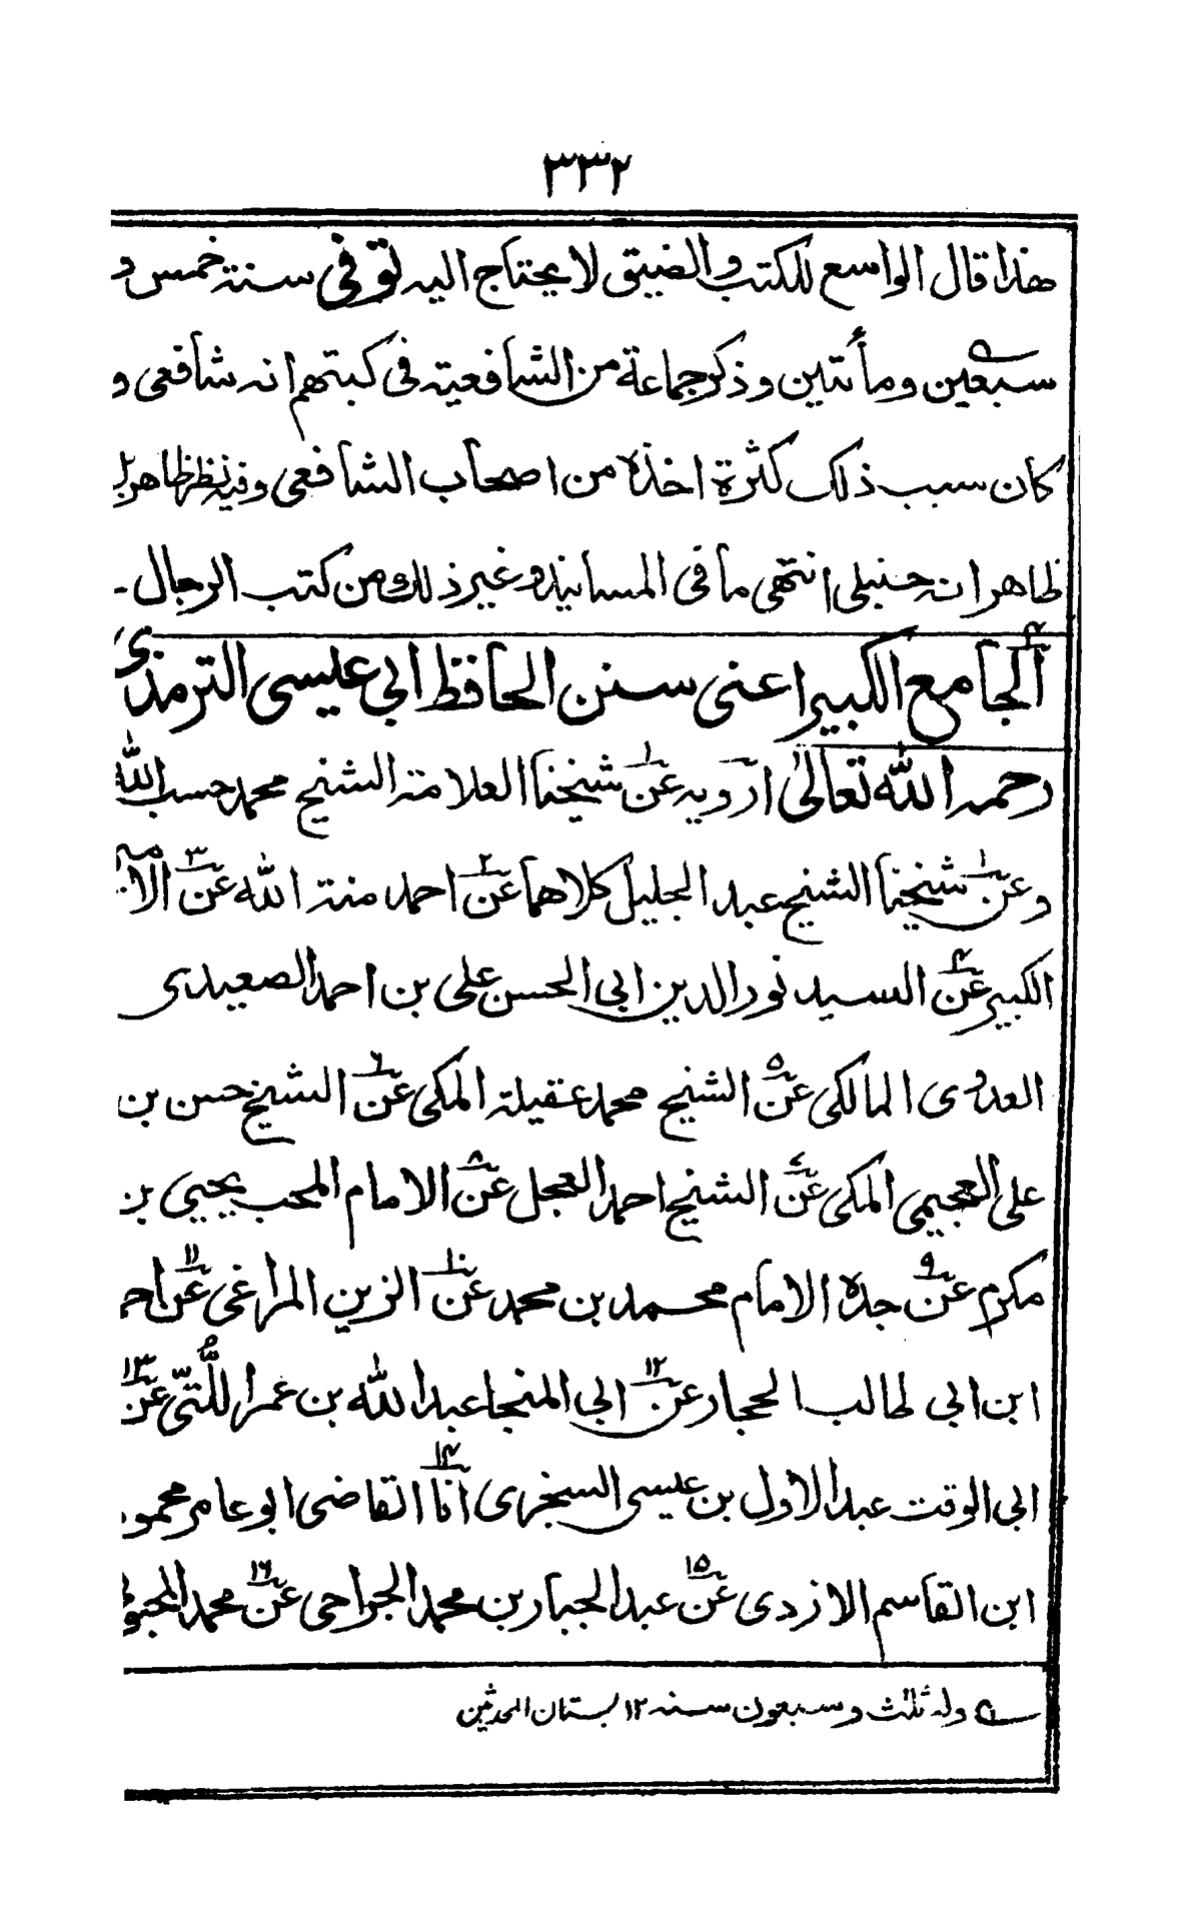 ٣٣٢
هذا قال الواسع للكتب والضيق لا يحتاج اليه توفى سنة خمس و
سبعين ومأتين وذكر جماعة من الشافعية فى كبتهم انه شافعى و
كان سبب ذلك كثرة اخذه من اصحاب الشافعى وفيه نظر ظاهر بل
ظاهر انه حنبلى انتهى ما فى المسانيد وغير ذلك من كتب الرجال -
٤
الجامع الكبير اعنى سنن الحافظ ابي عيسى الترمذي
رحمه الله تعالىٰ ارويه عن١ شيخنا العلامة الشيخ محمد حسب الله
وعن١ شيخنا الشيخ عبد الجليل كلاهما عن٢ احمد منة الله عن٣ الامير
الكبير عن٤ السيد نور الدين ابي الحسن على بن احمد الصعيدى
العدوى المالكى عن٥ الشيخ محمد عقيلة المكى عن٦ الشيخ حسن بن
على العجيمى المكى عن٧ الشيخ احمد العجل عن٨ الامام المحب يحيى بن
مكرم عن٩ جده الامام محمد بن محمد عن١٠ الزين المراغى عن١١ اح
ابن ابي طالب الحجار عن١٢ ابي المنجا عبد الله بن عمر اللُّتّىّ عن١٣
ابي الوقت عبد الاول بن عيسى السجزى انا١٤ القاضى ابو عامر محمود
ابن القاسم الازدى عن١٥ عبد الجبار بن محمد الجراحى عن١٦ محمد المحبوب
وله ثلث وسبعون سنه ١٢ بستان المحدثين